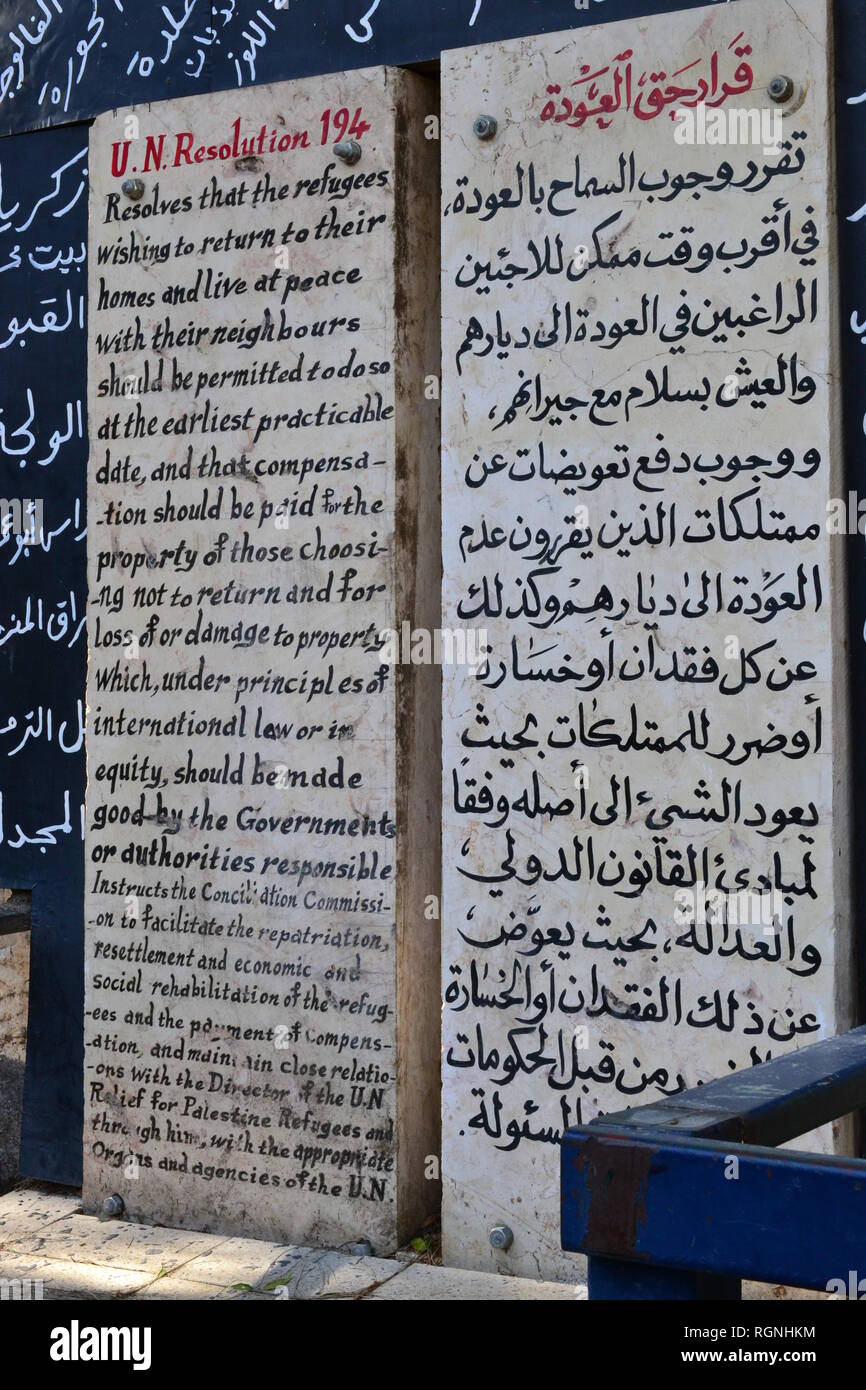 U.N. Resolution 194
Resolves that the refugees
wishing to return to their
homes and live at peace
with their neighbours
should be permitted to do so
at the earliest practicable
date, and that compensa-
-tion should be paid for the
property of those choosi-
-ng not to return and for
loss of or damage to property
which, under principles of
international law or in
equity, should be made
good by the Governments
or authorities responsible
Instructs the Conciliation Commissi-
-on to facilitate the repatriation,
resettlement and economic and
social rehabilitation of the refug-
-ees and the payment of Compens-
-ation, and maintain close relatio-
-ons with the Director of the U.N
Relief for Palestine Refugees and
through him, with the appropriate
Organs and agencies of the U.N.
قرار حق العودة
تقرر وجوب السماح بالعودة،
في أقرب وقت ممكن للاجئين
الراغبين في العودة الى ديارهم
والعيش بسلام مع جيرانهم،
ووجوب دفع تعويضات عن
ممتلكات الذين يقررون عدم
العودة الى ديارهم وكذلك
عن كل فقدان أو خسارة
أو ضرر للممتلكات بحيث
يعود الشيء الى أصله وفقاً
لمبادئ القانون الدولي،
والعدالة، بحيث يعوّض،
عن ذلك الفقدان أو الخسارة
من قبل الحكومات
المسئولة.
الفالوجة
الجورة
اللوز
زكريا
بيت
القبو
الولجة
راس أبو
المجدل
alamy
Image ID: RGNHKM
www.alamy.com